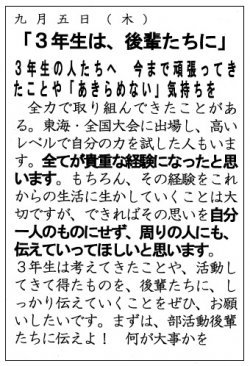 九月五日(木)
「3年生は、後輩たちに」
3年生の人たちへ 今まで頑張ってき
たことや「あきらめない」気持ちを
全力で取り組んできたことがあ
る。東海・全国大会に出場し、高い
レベルで自分の力を試した人もいま
す。全てが貴重な経験になったと思
います。もちろん、その経験をこれ
からの生活に生かしていくことは大
切ですが、できればその思いを自分
一人のものにせず、周りの人にも、
伝えていってほしいと思います。
3年生は考えてきたことや、活動し
てきて得たものを、後輩たちに、し
っかり伝えていくことをぜひ、お願
いしたいです。まずは、部活動後輩
たちに伝えよ! 何が大事かを